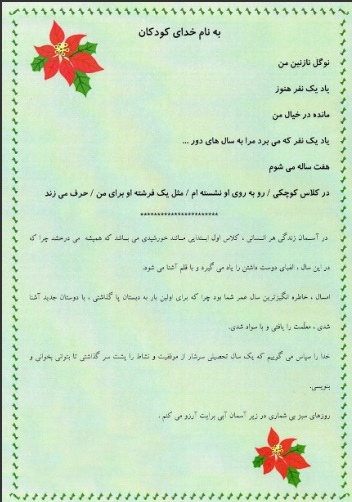 به نام خدای کودکان
نوگل نازنین من
یاد یک نفر هنوز
مانده در خیال من
یاد یک نفر که می برد مرا به سال های دور ...
هفت ساله می شوم
در کلاس کوچکی / رو به روی او نشسته ام / مثل یک فرشته او برای من / حرف می زند
************************
در آسمان زندگی هر انسانی ، کلاس اول ابتدایی مانند خورشیدی می باشد که همیشه می درخشد چرا که
در این سال ، الفبای دوست داشتن را یاد می گیرد و با قلم آشنا می شود.
امسال ، خاطره انگیزترین سال عمر شما بود چرا که برای اولین بار به دبستان پا گذاشتی ، با دوستان جدید آشنا
شدی ، معلّمت را یافتی و با سواد شدی.
خدا را سپاس می گوییم که یک سال تحصیلی سرشار از موفقیت و نشاط را پشت سر گذاشتی تا بتوانی بخوانی و
بنویسی.
روزهای سبز بی شماری در زیر آسمان آبی برایت آرزو می کنم .